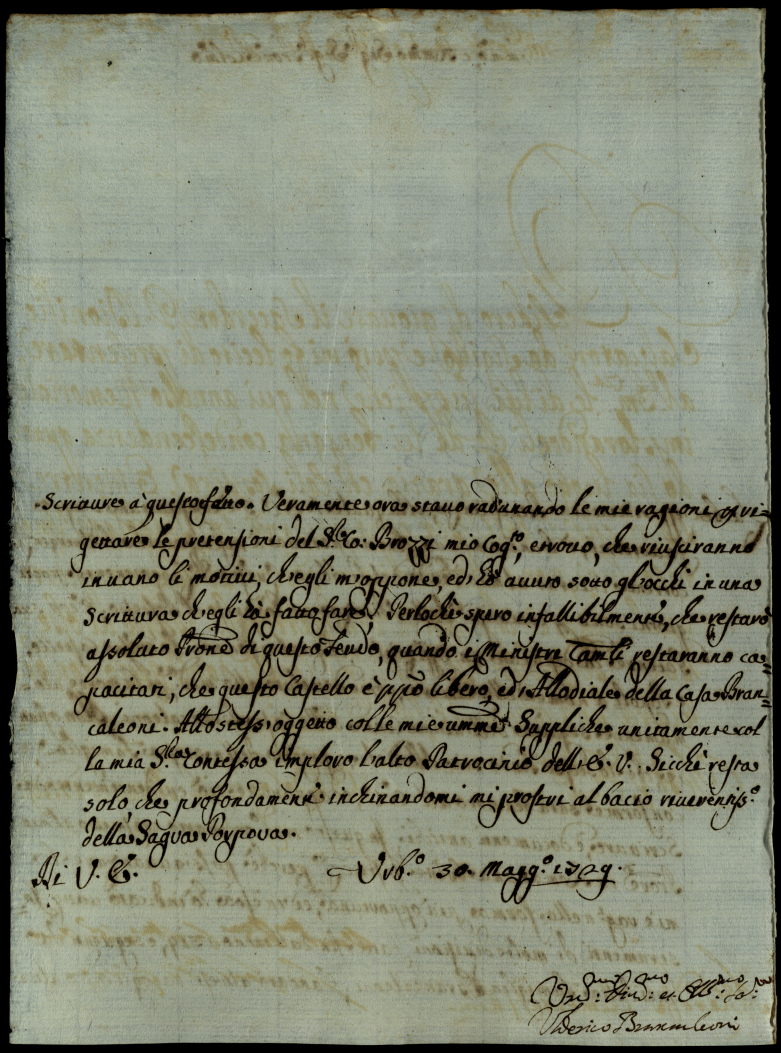 Scritture à questo fatto. Veramente ora stavo radunando le mie ragioni p ri=
gettare le pretensioni del S.r Co: Brozzi mio Cog.to, e trovo, che riusciranno
in vano li motivi, ch'egli m'oppone, ed hò avuto sotto gl'occhi in una
Scrittura ch'egli hà fatto fare. Perloche spero infallibilmente, che restarò
assoluto Prone di questo Feudo, quando i Ministri Camli restaranno ca=
pacitati, che questo Castello è ppio libero, ed Allodiale della Casa Bran=
caleoni. Allo stess'oggetto colle mie umme Suppliche unitamente col
la mia S.ra Contessa imploro l'alto Patrocinio dell'E. V. Sicchè resta
solo, che profondamente inchinandomi mi prostri al bacio riverentiss.o
della Sagra Porpora.
Di V. E. Urb.o 30. Magg.o 1729.
Um.mo Div.mo et Obb.mo Se.re
Federico Brancaleoni